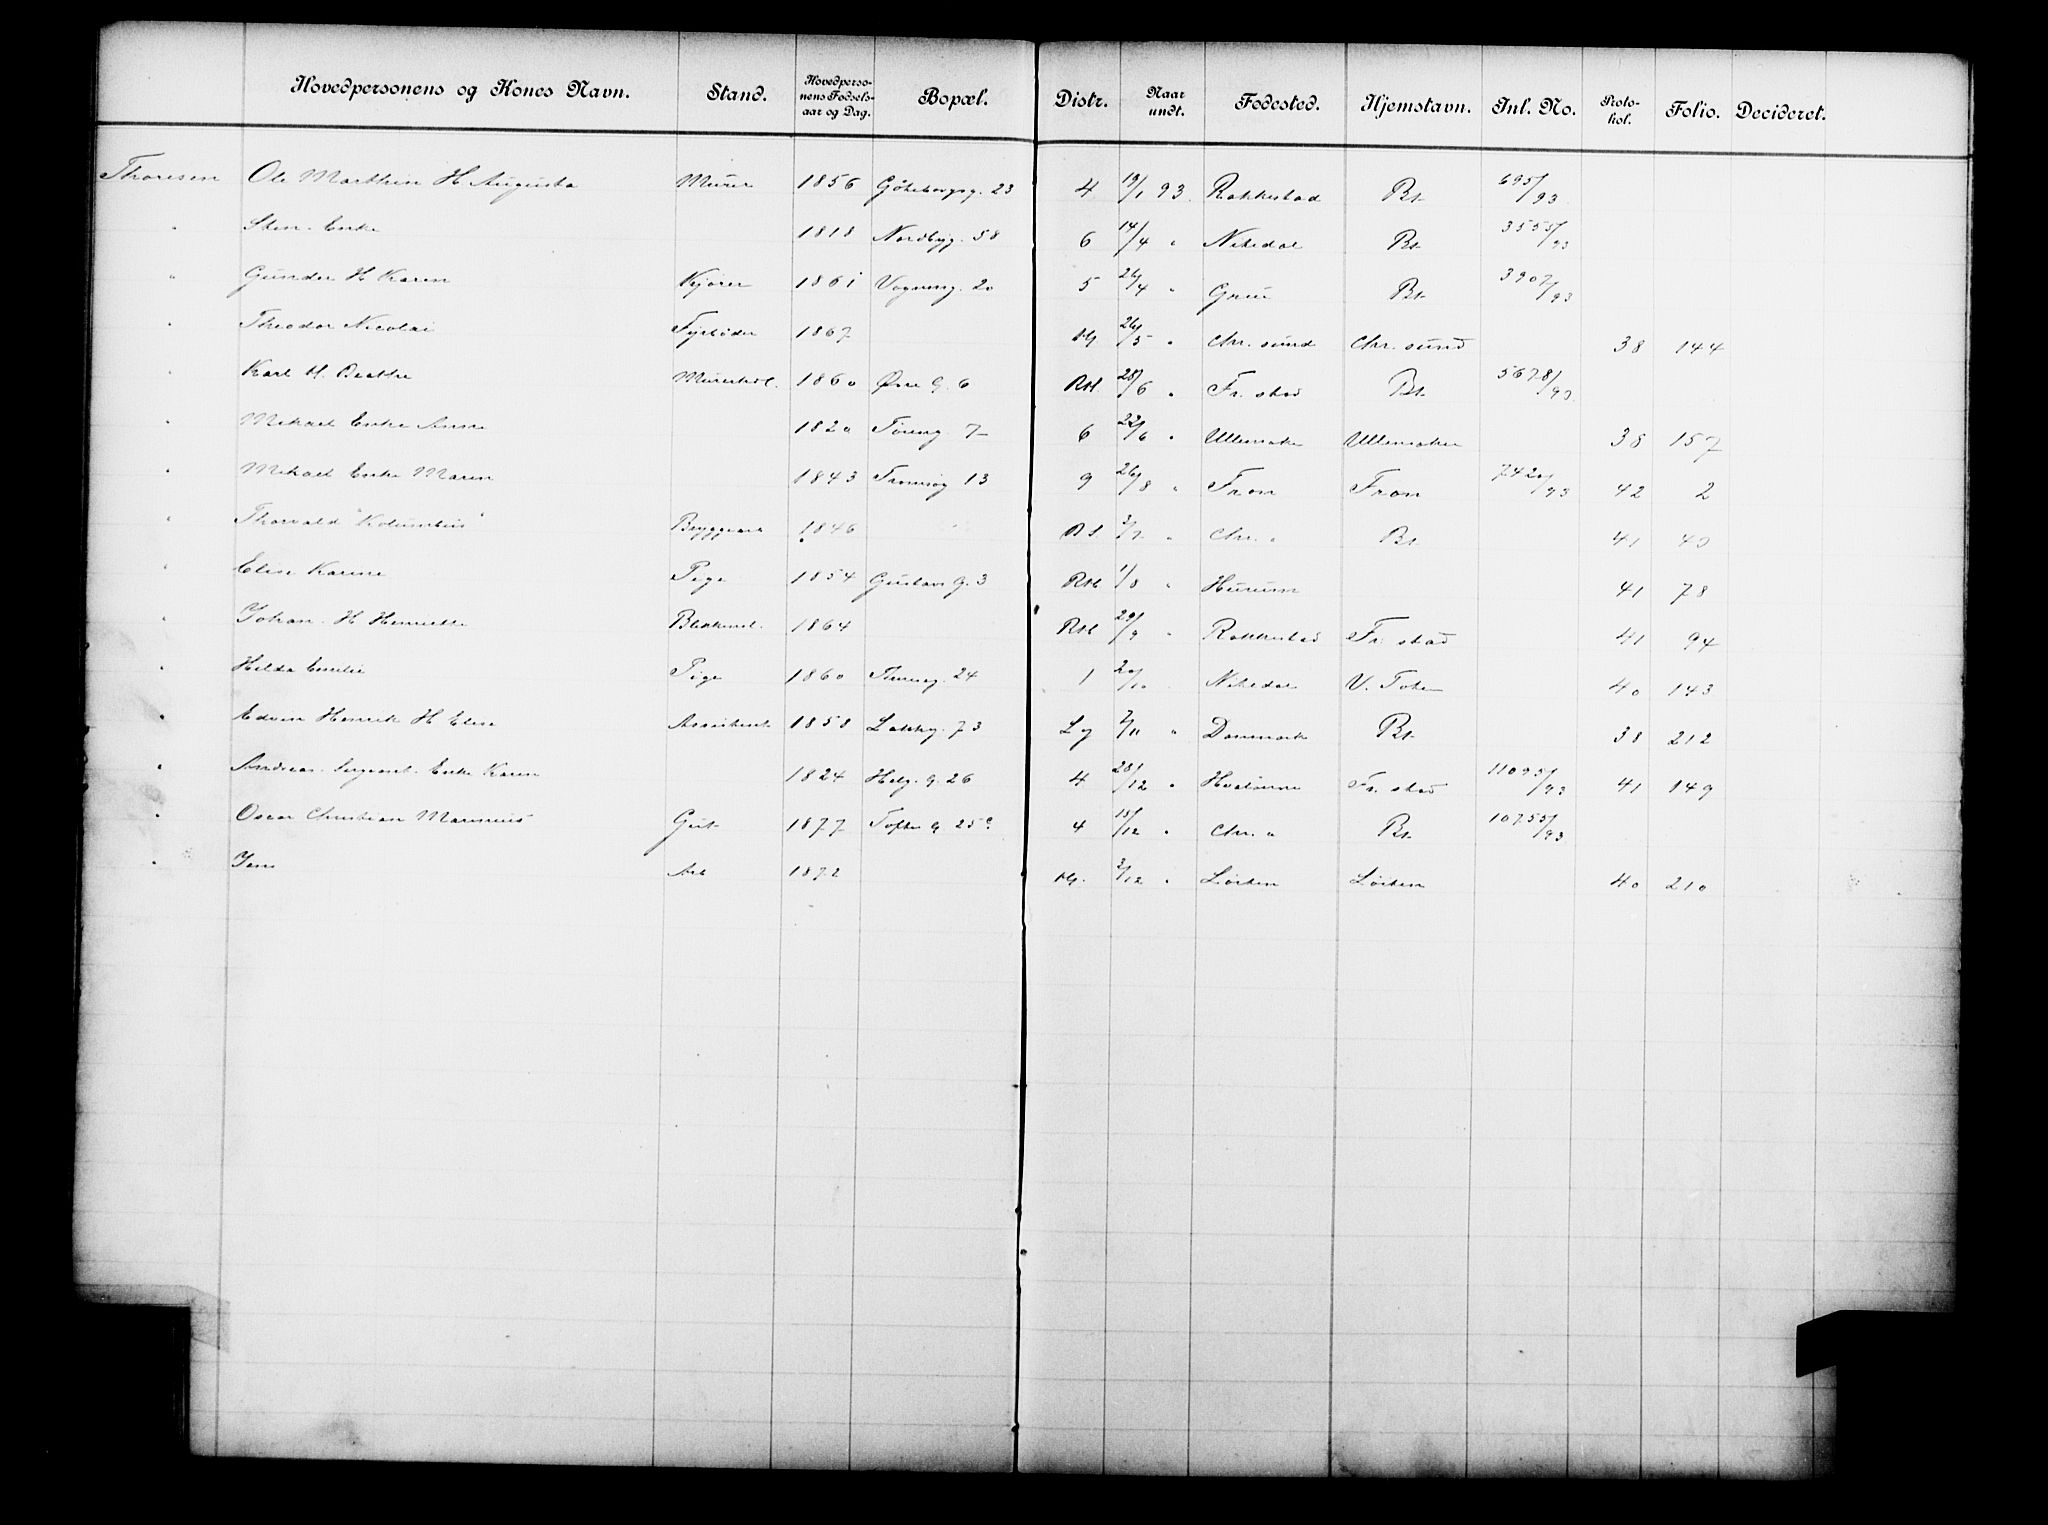 Hovedpersonens og Kones Navn. Stand. Hovedpersonens Fødselsaar og Dag. Bopæl. Distr. Naar undt. Fødested. Hjemstavn. Inl. No. Protokol. Folio. Decideret.
Thoresen Ole Marthin H Augusta Murer 1856 Göteborgsg. 23 4 19/1 93. Rakkestad Bt. 695/93.
" Sten. Enke 1818 Nordbyg. 58 6 14/4 " Nitedal Bt. 3555/93
" Gunder H Karen Kjører 1861 Vogneng. 20 5 26/4 " Grue Bt. 3907/93
" Theodor Nicolai Fyrbøder 1867 26/5 " Chr. sund Chr. sund 38 144
" Karl H. Beathe 1860 Øvre G. 6 28/6 " Fr. stad Bt. 5678/93
" Mikael Enke Anne 1820 Tøieng. 7 6 22/6 " Ullensaker Ullensaker 38 157
" Mikael Enke Maren 1843 Tromsøg 13 9 26/8 " Fron Fron 7420/93 42 2
" Thorvald "Kolumbus" 1846 " Chr. a Bt. 41 40
" Elise Karine Pige 1854 Gustavs G. 3 1/8 " Hurum 41 78
" Johan. H Henriette 1864 29/9 " Rakkestad Fr. stad 41 94
" Hilda Emilie Pige 1860 24 1 20/10 Nitedal V. Toten 40 143
" Edvin Henrik H Elise Assistent 1858 Lakkeg. 73 2/11 " Danmark Bt. 38 212
" Andreas. Sergeant. Enke Karen 1824 Helg. G. 26 4 28/12 " Hvaløerne Fr. stad 11095/93 41 149
" Oscar Christian Marinius Gut 1877 Toftes G 25c 4 15/12 " Chr. a Bt. 10755/93
" Jens Arb 1872 3/12 " Løiten Løiten 40 210